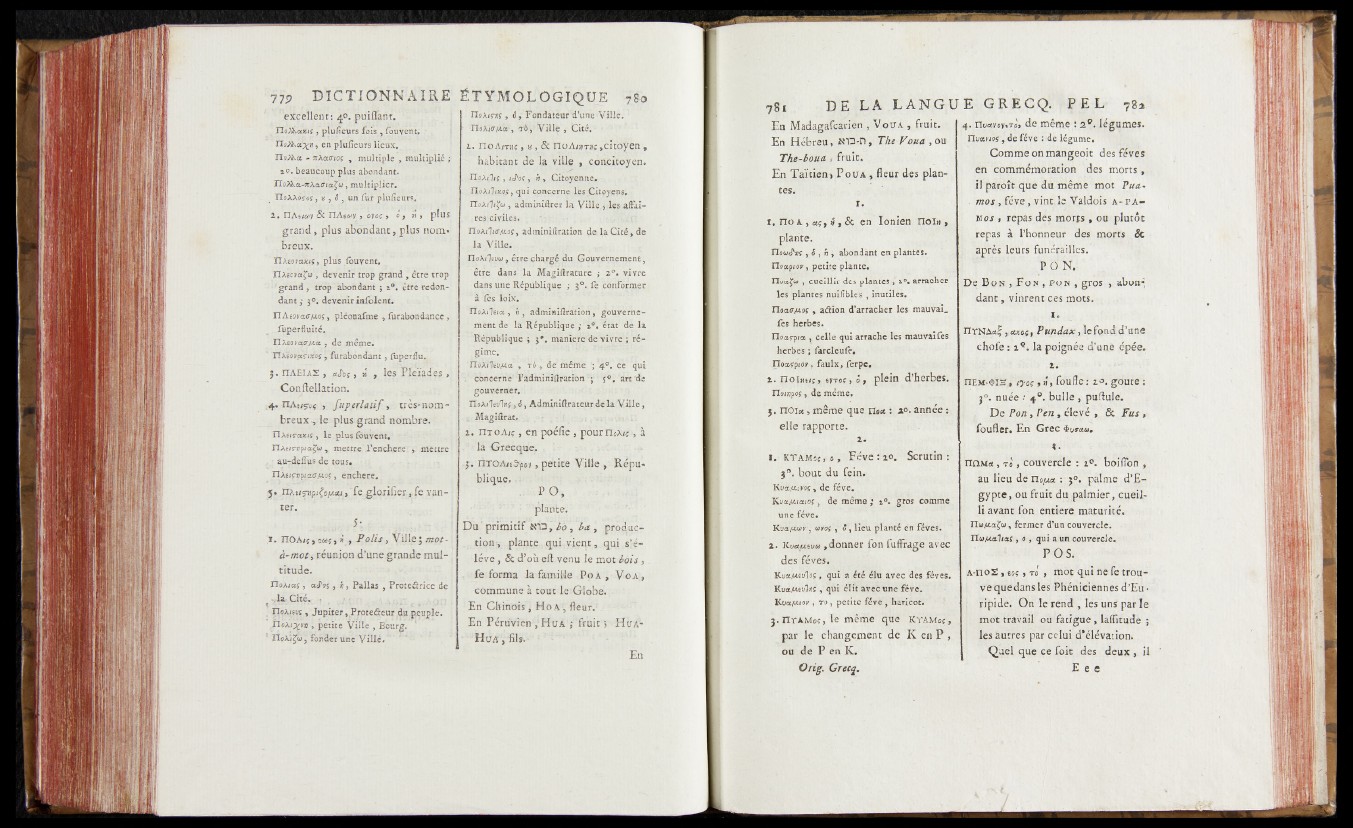 779 DICTIONNAIRE ÉTYMOLOGIQUE 780
excellent: 4°. puiſſant.
Πολλακις, pluſieurs fois, ſouvent.
Πολλαχη, en pluſieurs lieux.
Πολλα-πλασιος, multiple, multiplié;
2°. beaucoup plus abondant.
Πολλα-πλασιαζω, multiplier.
Πολλοςος, η, ὁ, un ſur pluſieurs.
2. ΠΛειων & ΠΛεων, ονος, ὁ, ἡ, plus
grand, plus abondant, plus nom-
breux.
Πλεονακις, plus ſouvent.
Πλεοναζω, devenir trop grand, être trop
grand, trop abondant; 2°. être redon-
dant; 3°. devenir inſolent.
ΠΛεονασμος, pléonaſme, ſurabondance,
ſuperfluité.
Πλεονασμα, de même.
Πλεοναςικος, ſurabondant, ſuperflu.
3. ΠΛΕΙΑΣ, αδος, ἡ, les Pleïades,
Conſtellation.
4. ΠΛειςος, ſuperlatif, très-nom-
breux, le plus grand nombre.
Πλειςακις, le plus ſouvent.
Πλειςηριαζω, mettre l'enchere; mettre
au-deſſus de tous.
Πλειςηριασμος, enchere.
5. Πλειςηριζομαι, ſe glorifier, ſe van-
ter.
5.
1. ΠΟΛις, εως, ἡ, Polis, Ville; mot-
à-mot, réunion d'une grande mul-
titude.
Πολιας, αδος, ἡ, Pallas, Protectrice de
la Cité.
Πολιευς, Jupiter, Protecteur du peuple.
Πολιχνη, petite Ville, Bourg.
Πολιζω, fonder une Ville.
Πολιςης, ὁ, Fondateur d'une Ville.
Πολισμα, τὸ, Ville, Cité.
2. ΠΟΛιτης, ου, & ΠΟΛιητης, citoyen,
habitant de la ville, concitoyen.
Πολιτις, ιδος, ἡ, Citoyenne.
Πολιτικος, qui concerne les Citoyens.
Πολιτιζω, adminiſtrer la Ville, les affai-
res civiles.
Πολιτισμος, adminiſtration de la Cité, de
la Ville.
Πολιτευω, être chargé du Gouvernement,
être dans la Magiſtrature; 2°. vivre
dans une République; 3°. ſe conformer
à ſes loix.
Πολιτεια, ἡ, adminiſtration, gouverne-
ment de la République; 2°. état de la
République; 3°. maniere de vivre; ré-
gime.
Πολιτευμα, τὸ, de même; 4°. ce qui
concerne l'adminiſtration; 5°. art de
gouverner.
Πολιτευτης, ὁ, Adminiſtrateur de la Ville,
Magiſtrat.
2. ΠΤΟΛις, en poéſie, pour Πολις, à
la Grecque.
3. ΠΤΟΛιεθρον, petite Ville, Répu-
blique.
PO,
plante.
Du primitif בוא, bo, ba, produc-
tion, plante qui vient, qui s'é-
léve, & d'où eſt venu le mot bois,
ſe forma la famille POA, VOA,
commune à tout le Globe.
En Chinois, HOA, fleur.
En Péruvien, HUA; fruit; HUA-
HUA, fils.
En
781 DE LA LANGUE GRECQ. PEL 782
En Madagaſcarien, VOUA, fruit.
En Hébreu, The Voua, ou
The-boua, fruit.
En Taïtien, POUA, fleur des plan-
tes.
1.
1. ΠΟΑ, ας, ἡ, & en Ionien ΠΟΙη,
plante.
Ποωδης, ὁ, ἡ, abondant en plantes.
Ποαριον, petite plante.
Ποαζω, cueillir des plantes, 2°. arracher
les plantes nuiſibles, inutiles.
Ποασμος, action d'arracher les mauvai-
ſes herbes.
Ποαςρια, celle qui arrache les mauvaiſes
herbes; ſarcleuſe.
Ποαςριον, faulx, ſerpe.
2. ΠΟΙηεις, εντος, ὁ, plein d'herbes.
Ποιηρος, de même.
3. ΠΟΙα, même que Ποα: 2°. année:
elle rapporte.
2.
1. ΚΥΑΜος, ὁ, Féve: 2°. Scrutin:
3°. bout du ſein.
Κυαμινος, de féve.
Κυαμιαιος, de même; 2°. gros comme
une féve.
Κυαμων, ωνος, ὁ, lieu planté en féves.
2. Κυαμευω, donner ſon ſuffrage avec
des féves.
Κυαμευτος, qui a été élu avec des féves.
Κυαμευτης, qui élit avec une féve.
Κυαμιον, το, petite féve, haricot.
3. ΠΥΑΜος, le même que ΚΥΑΜος,
par le changement de K en P,
ou de P en K.
Orig. Grecq.
4. Πυανον, τὸ, de même: 2°. légumes.
Πυανιος, de féve: de légume.
Comme on mangeoit des féves
en commémoration des morts,
il paroît que du même mot Pua-
mos, féve, vint le Valdois A-PA-
MOS, repas des morts, ou plutôt
repas à l'honneur des morts &
après leurs funérailles.
PON.
De BON, FON, PON, gros, abon-
dant, vinrent ces mots.
1.
ΠΥΝΔαξ, ακος, Pundax, le fond d'une
choſe: 2°. la poignée d'une épée.
2.
ΠΕΜ-ΦΙΞ, ιγος, ἡ, ſoufle: 2°. goute;
3°. nuée: 4°. bulle, puſtule.
De Pon, Pen, élevé, & Fus,
ſouffler. En Grec Φυσαω.
3.
ΠΩΜα, τὸ, couvercle: 2°. boiſſon,
au lieu de Πομα: 3°. palme d'E-
gypte, ou fruit du palmier, cueil-
li avant ſon entiere maturité.
Πωμαζω, fermer d'un couvercle.
Πωματιας, ὁ, qui a un couvercle.
POS.
Α-ΠΟΣ, εος, τὸ, mot qui ne ſe trou-
ve que dans les Phéniciennes d'Eu-
ripide. On le rend, les uns par le
mot travail ou fatigue, laſſitude;
les autres par celui d'élévation.
Quel que ce ſoit des deux, il
E e e